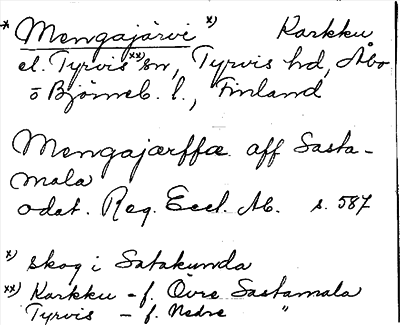 * Mengajärvi *) Karkku
el. Tyrvis **) sn, Tyrvis hd, Åbo
o Björneb. l., Finland
Mengajærffæ aff Sasta-
mala
odat. Reg. Eccl. Ab. s. 587
*) skog i Satakunda
**) Karkku - f. Övre Sastamala
Tyrvis - f. Nedre "